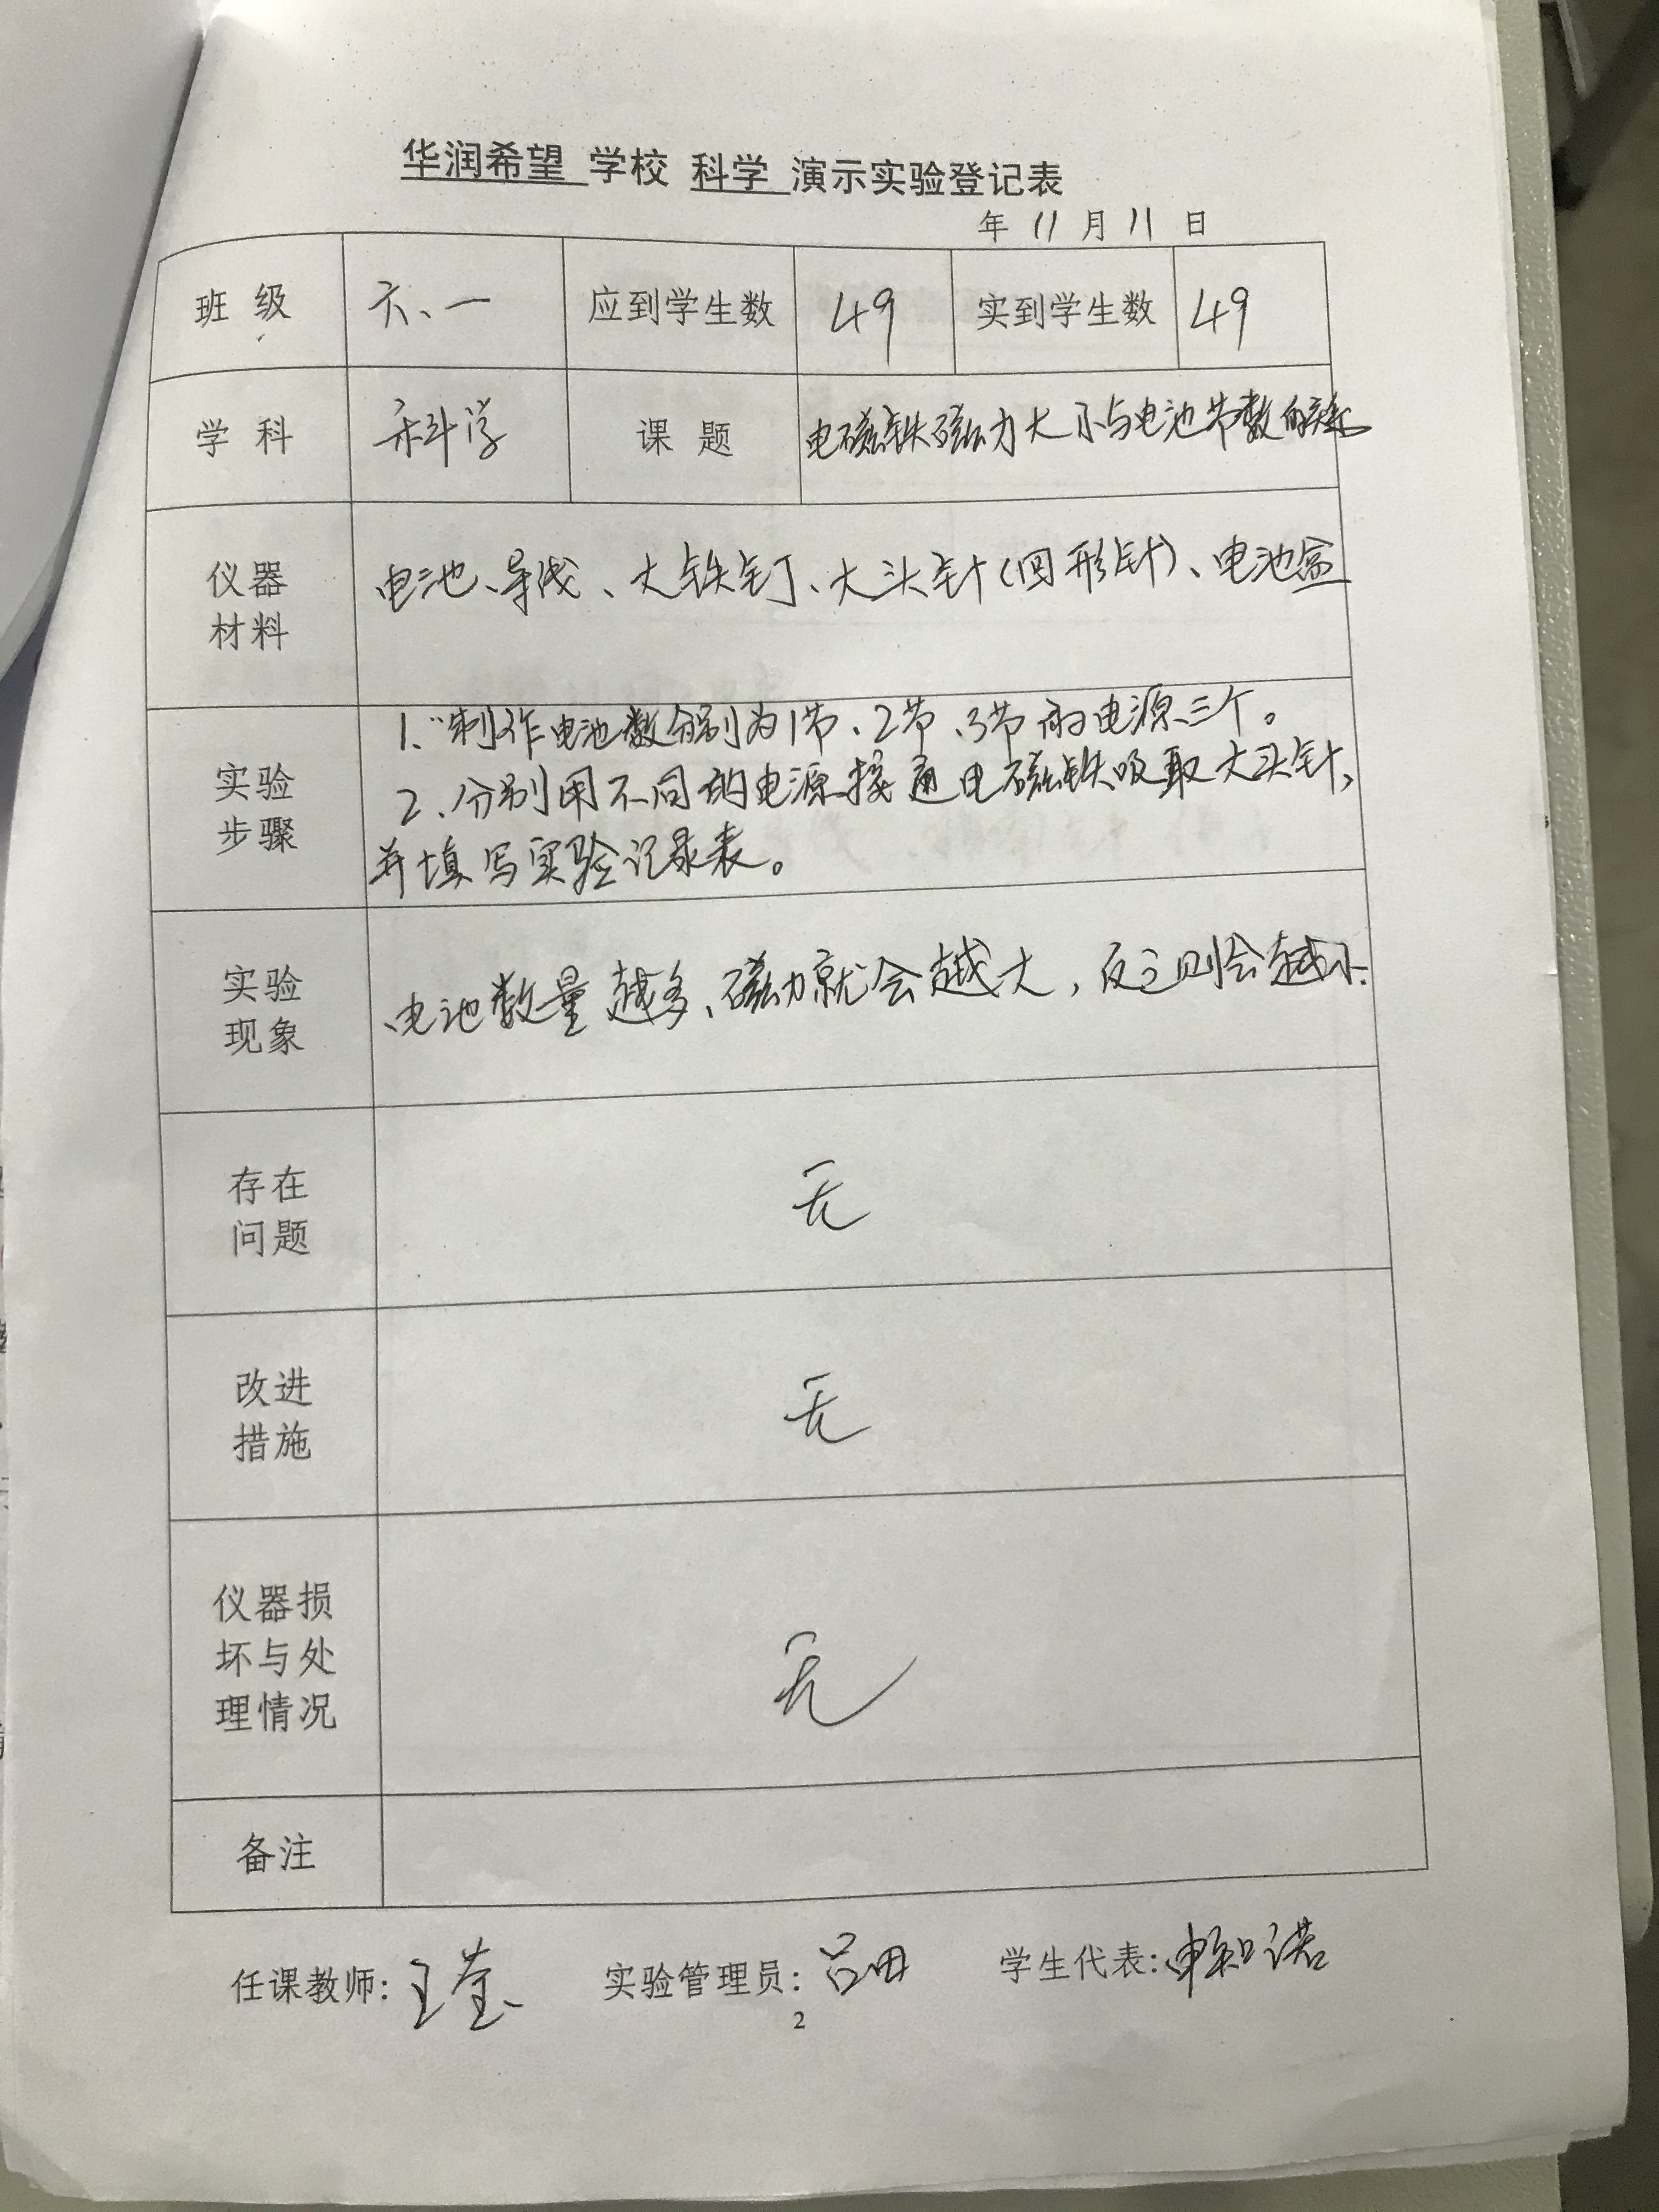 华润希望 学校 科学 演示实验登记表
年 11 月 11 日
班 级 六、一 应到学生数 49 实到学生数 49
学 科 科学 课 题 电磁铁磁力大小与电池节数的关系
仪器
材料
电池、导线、大铁钉、大头针(回形针)、电池盒
实验
步骤
1.制作电池数分别为1节、2节、3节的电源三个。
2、分别用不同的电源接通电磁铁吸取大头针,
并填写实验记录表。
实验
现象
电池数量越多、磁力就会越大,反之则会越小.
存在
问题
无
改进
措施
无
仪器损
坏与处
理情况
无
备注
任课教师:王莹 实验管理员:吕田 学生代表:申知诺
2